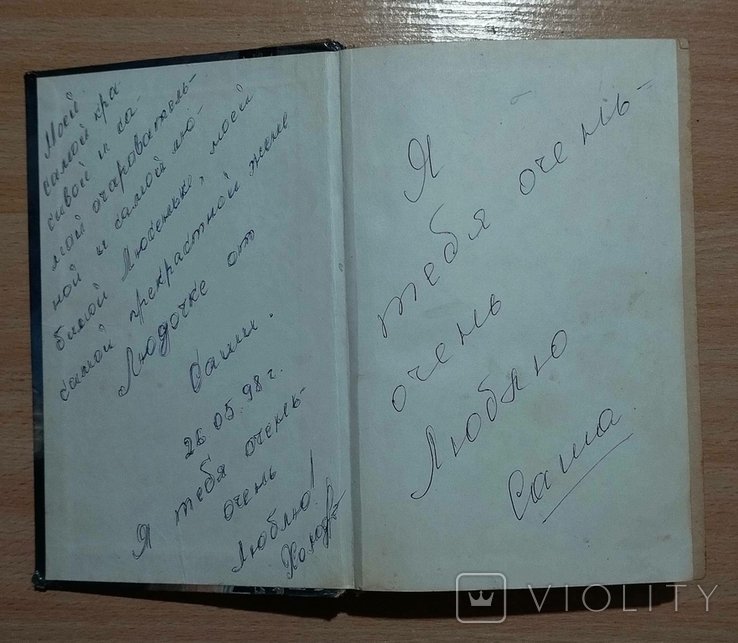 Моей
самой кра
сивой и са
мой очарователь-
ной и самой лю-
бимой Люсеньке, моей
самой прекрастной жене
Людочке от
Саши.
26.05.98 г.
Я тебя очень-
очень
Люблю!
Я
тебя очень-
очень
Люблю
Саша
VIOLITY